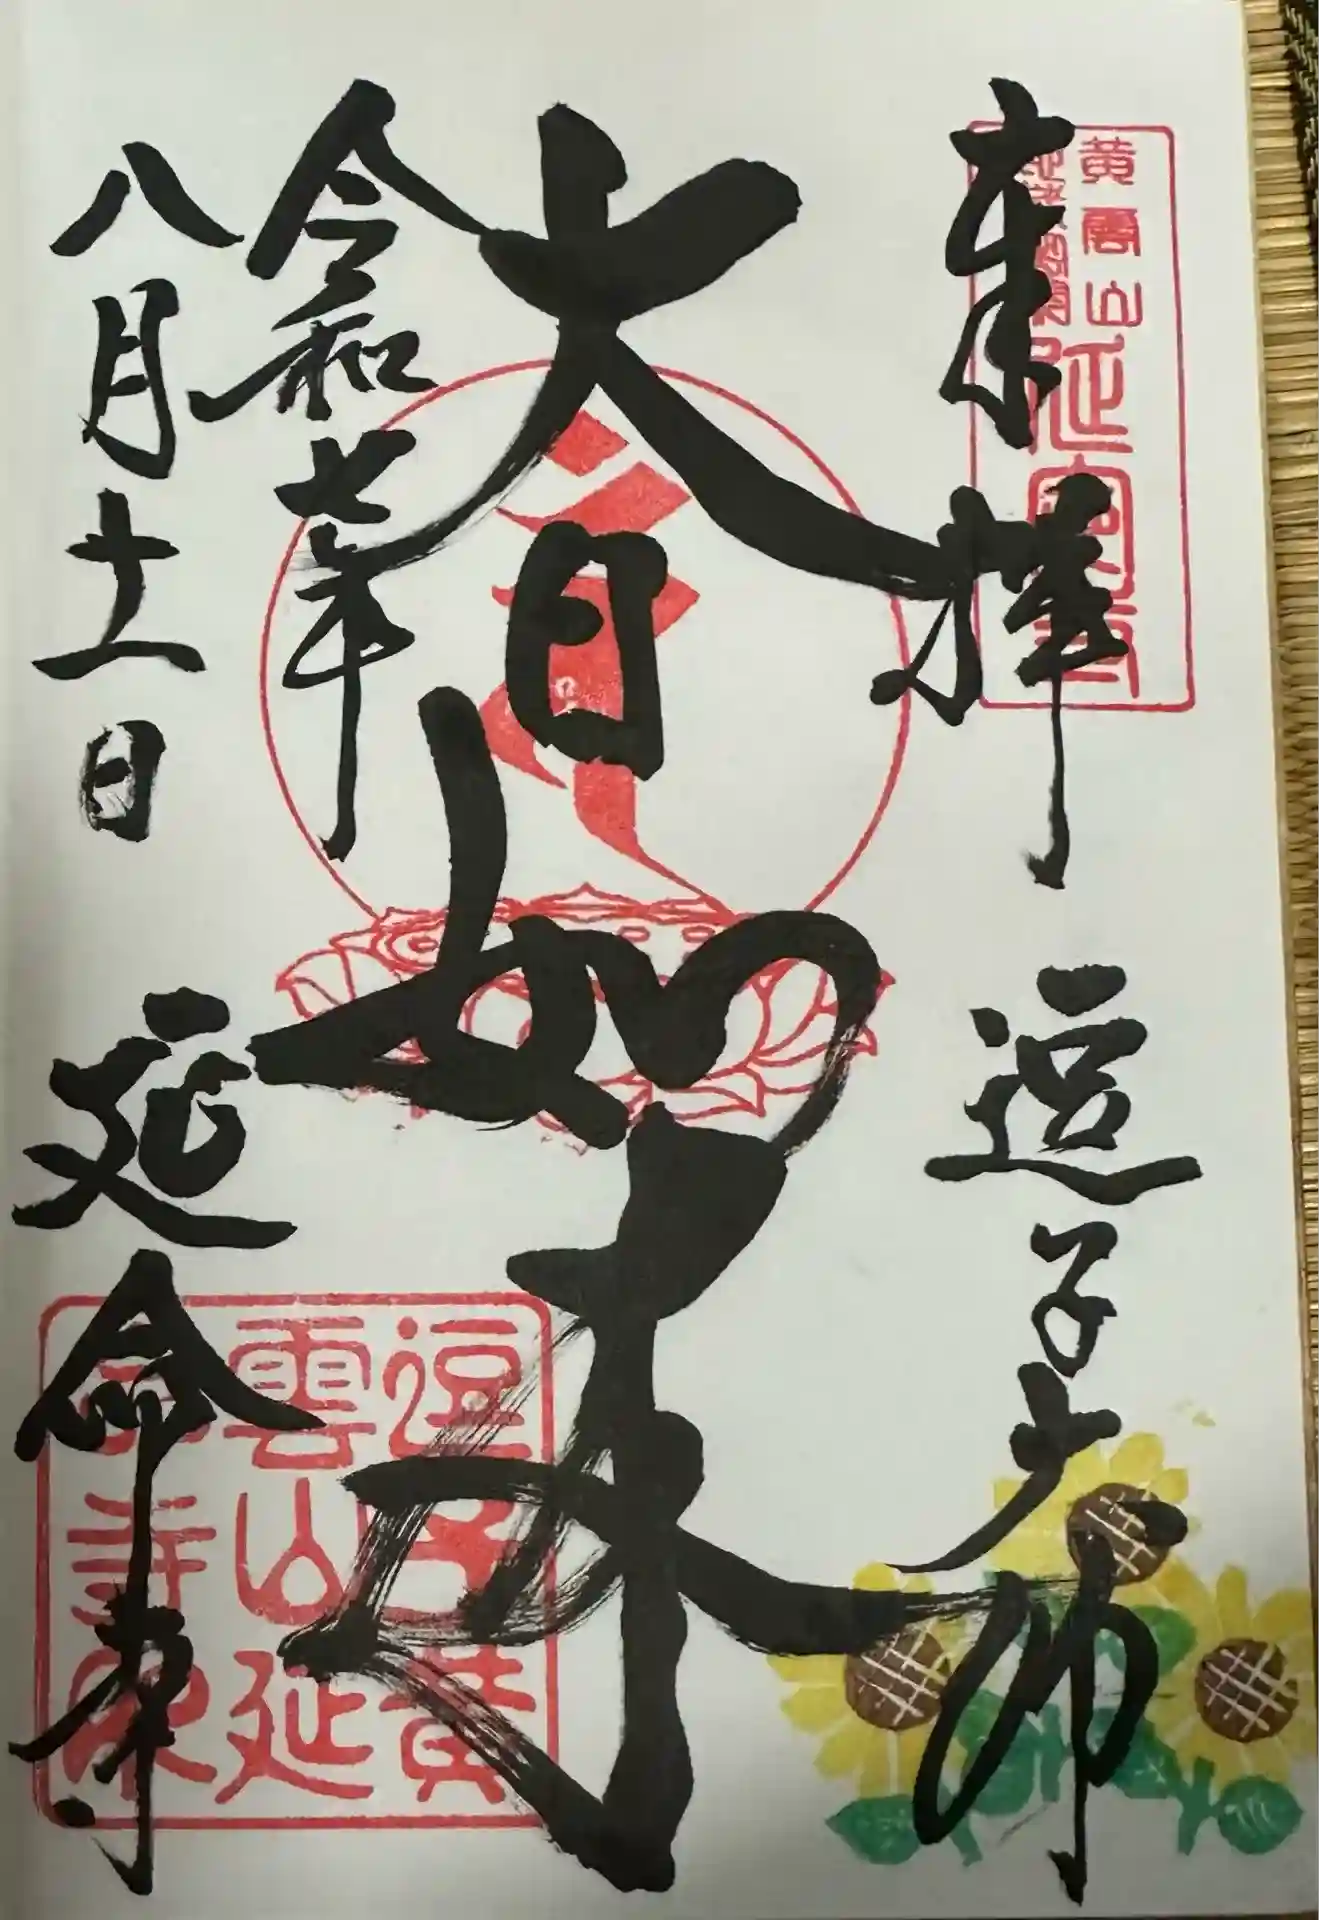 奉拝 逗子大師
黄雲山
延命寺
大日如来
令和七年
八月十一日 延命寺
逗子黄
雲山延
命寺印